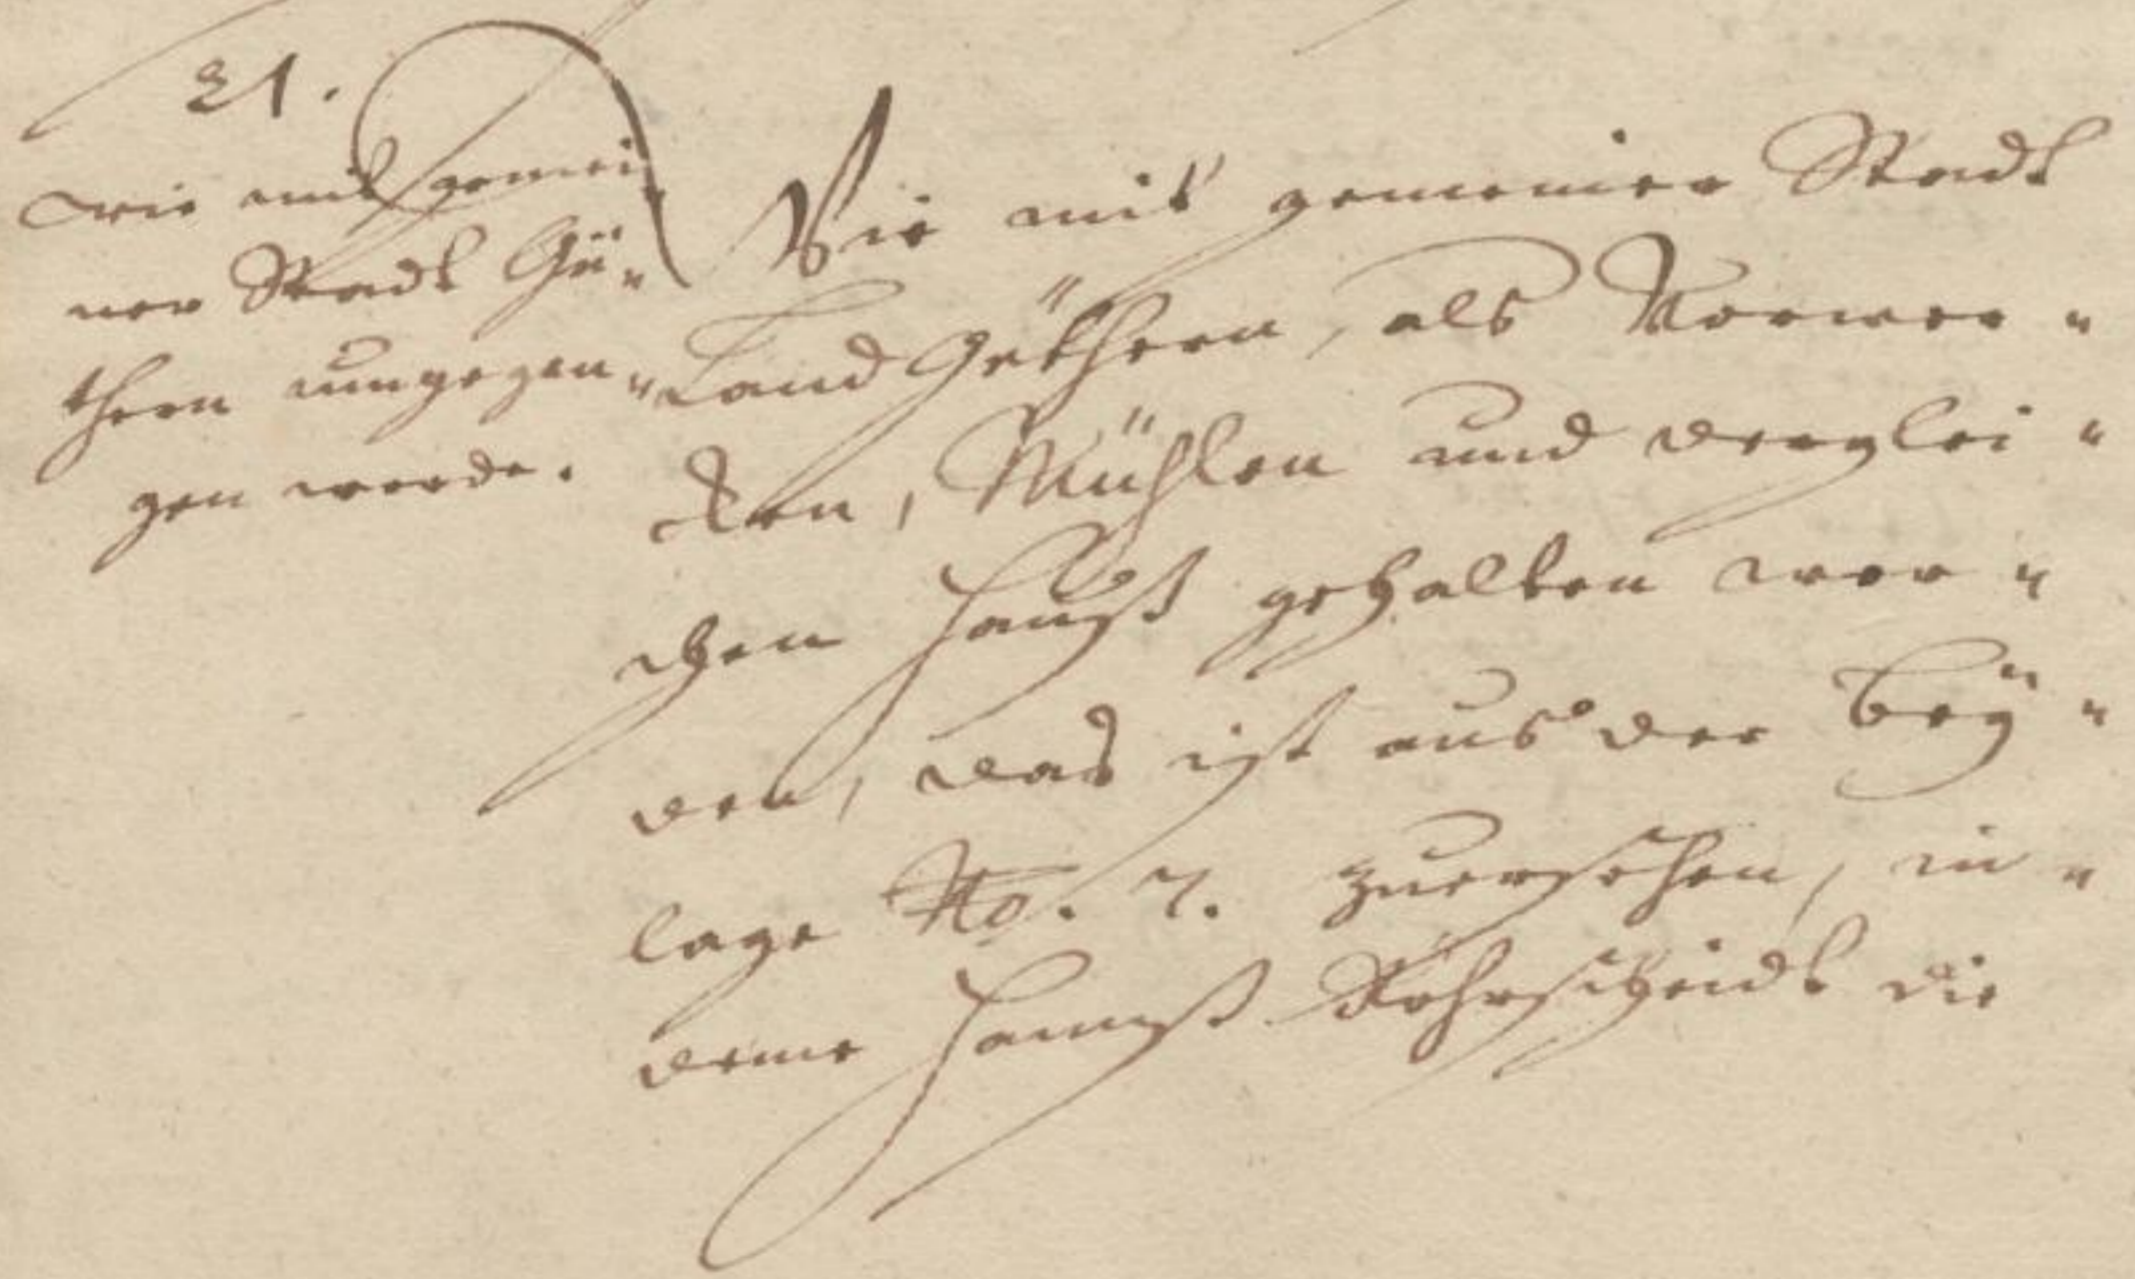 21.
wie mit gemei
ner Stadt Gü-
thern umgegan-
gen werde.
Wie mit gemeiner Stadt
Land Güthern, als Vorwer-
cken, Mühlen und derglei-
chen Hauß gehalten wer-
den, das ist aus der Bey-
lage No. 7. zuersehen, in-
deme Hannß Rohrscheidt die